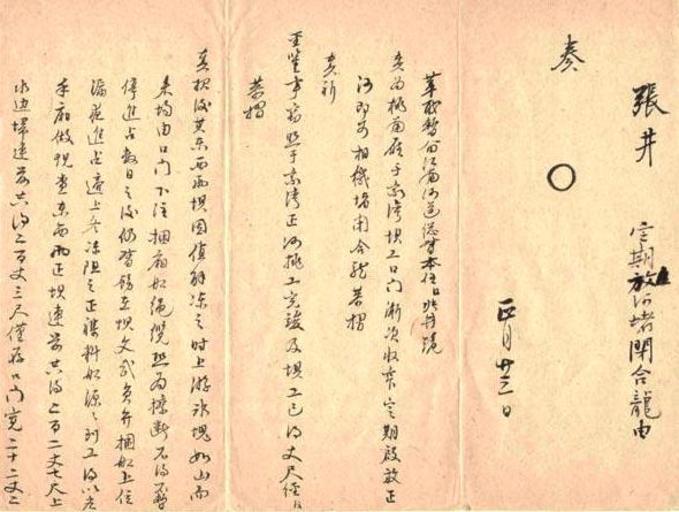 張井 定期放河堵閉合龍由
奏
正月廿三日
革職暫留江南河道總督本任臣張井跪
奏為桃南廳于家灣垻工口門漸次收窄定期啟放正
河即可相機堵閉合龍恭摺
奏祈
聖鑒事竊照于家灣正河挑工完竣及垻工已得丈尺經臣
恭摺
奏報後其東西兩垻因值解凍之時上游冰塊如山而
來均由口門下注捆廂船繩纜悉為擦斷不得不暫
停進占數日之後仍督飭在垻文武員弁捆船上位
漏夜進占適上冬凍阻之正雜料船源源到工得以應
手廂做現查東西兩正垻連前共得二百二丈七尺上
水边垻連前共得二百丈三尺僅存口門寬二十二丈二